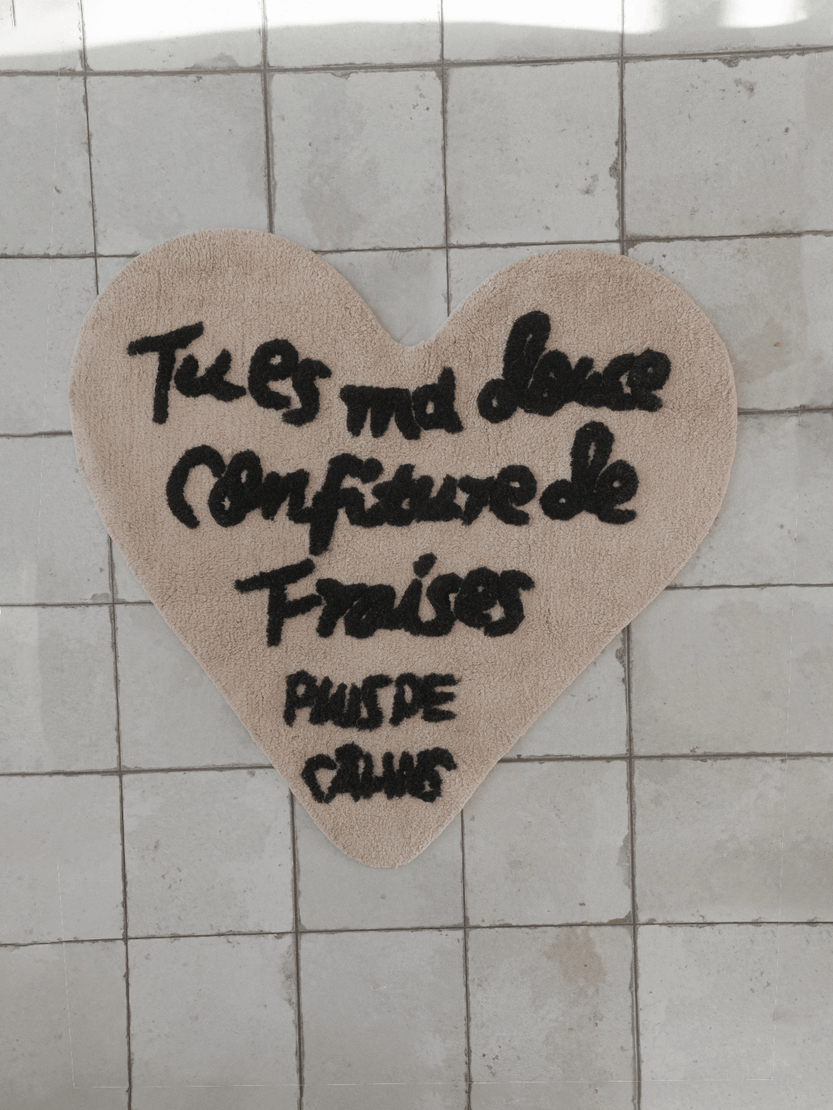 Tu es ma douce
Confiture de
Fraises
PLUS DE
CÂLINS